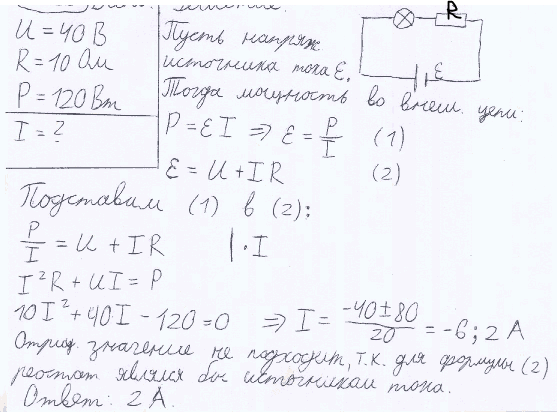 Решение.
U = 40 В
R = 10 Ом
P = 120 Вт
I = ?
Пусть напряж.
источника тока ℰ.
Тогда мощность во внеш. цепи:
R
ℰ
P = ℰI ⇒ ℰ = P/I (1)
ℰ = U + IR (2)
Подставим (1) в (2):
P/I = U + IR | · I
I²R + UI = P
10I² + 40I - 120 = 0 ⇒ I = (-40 ± 80)/20 = -6; 2 А
Отриц. значение не подходит, т.к. для формулы (2)
реостат являлся бы источником тока.
Ответ: 2 А.